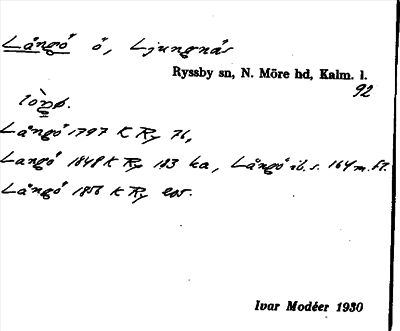 Långö ö, Ljungnäs
Ryssby sn, N. Möre hd, Kalm. l.
92
Långö 1797 K Ry 76,
Langö 1848 K Ry 183 ka, Långö ib. s. 164 m. fl.
Långö 1858 K Ry
Ivar Modéer 1930